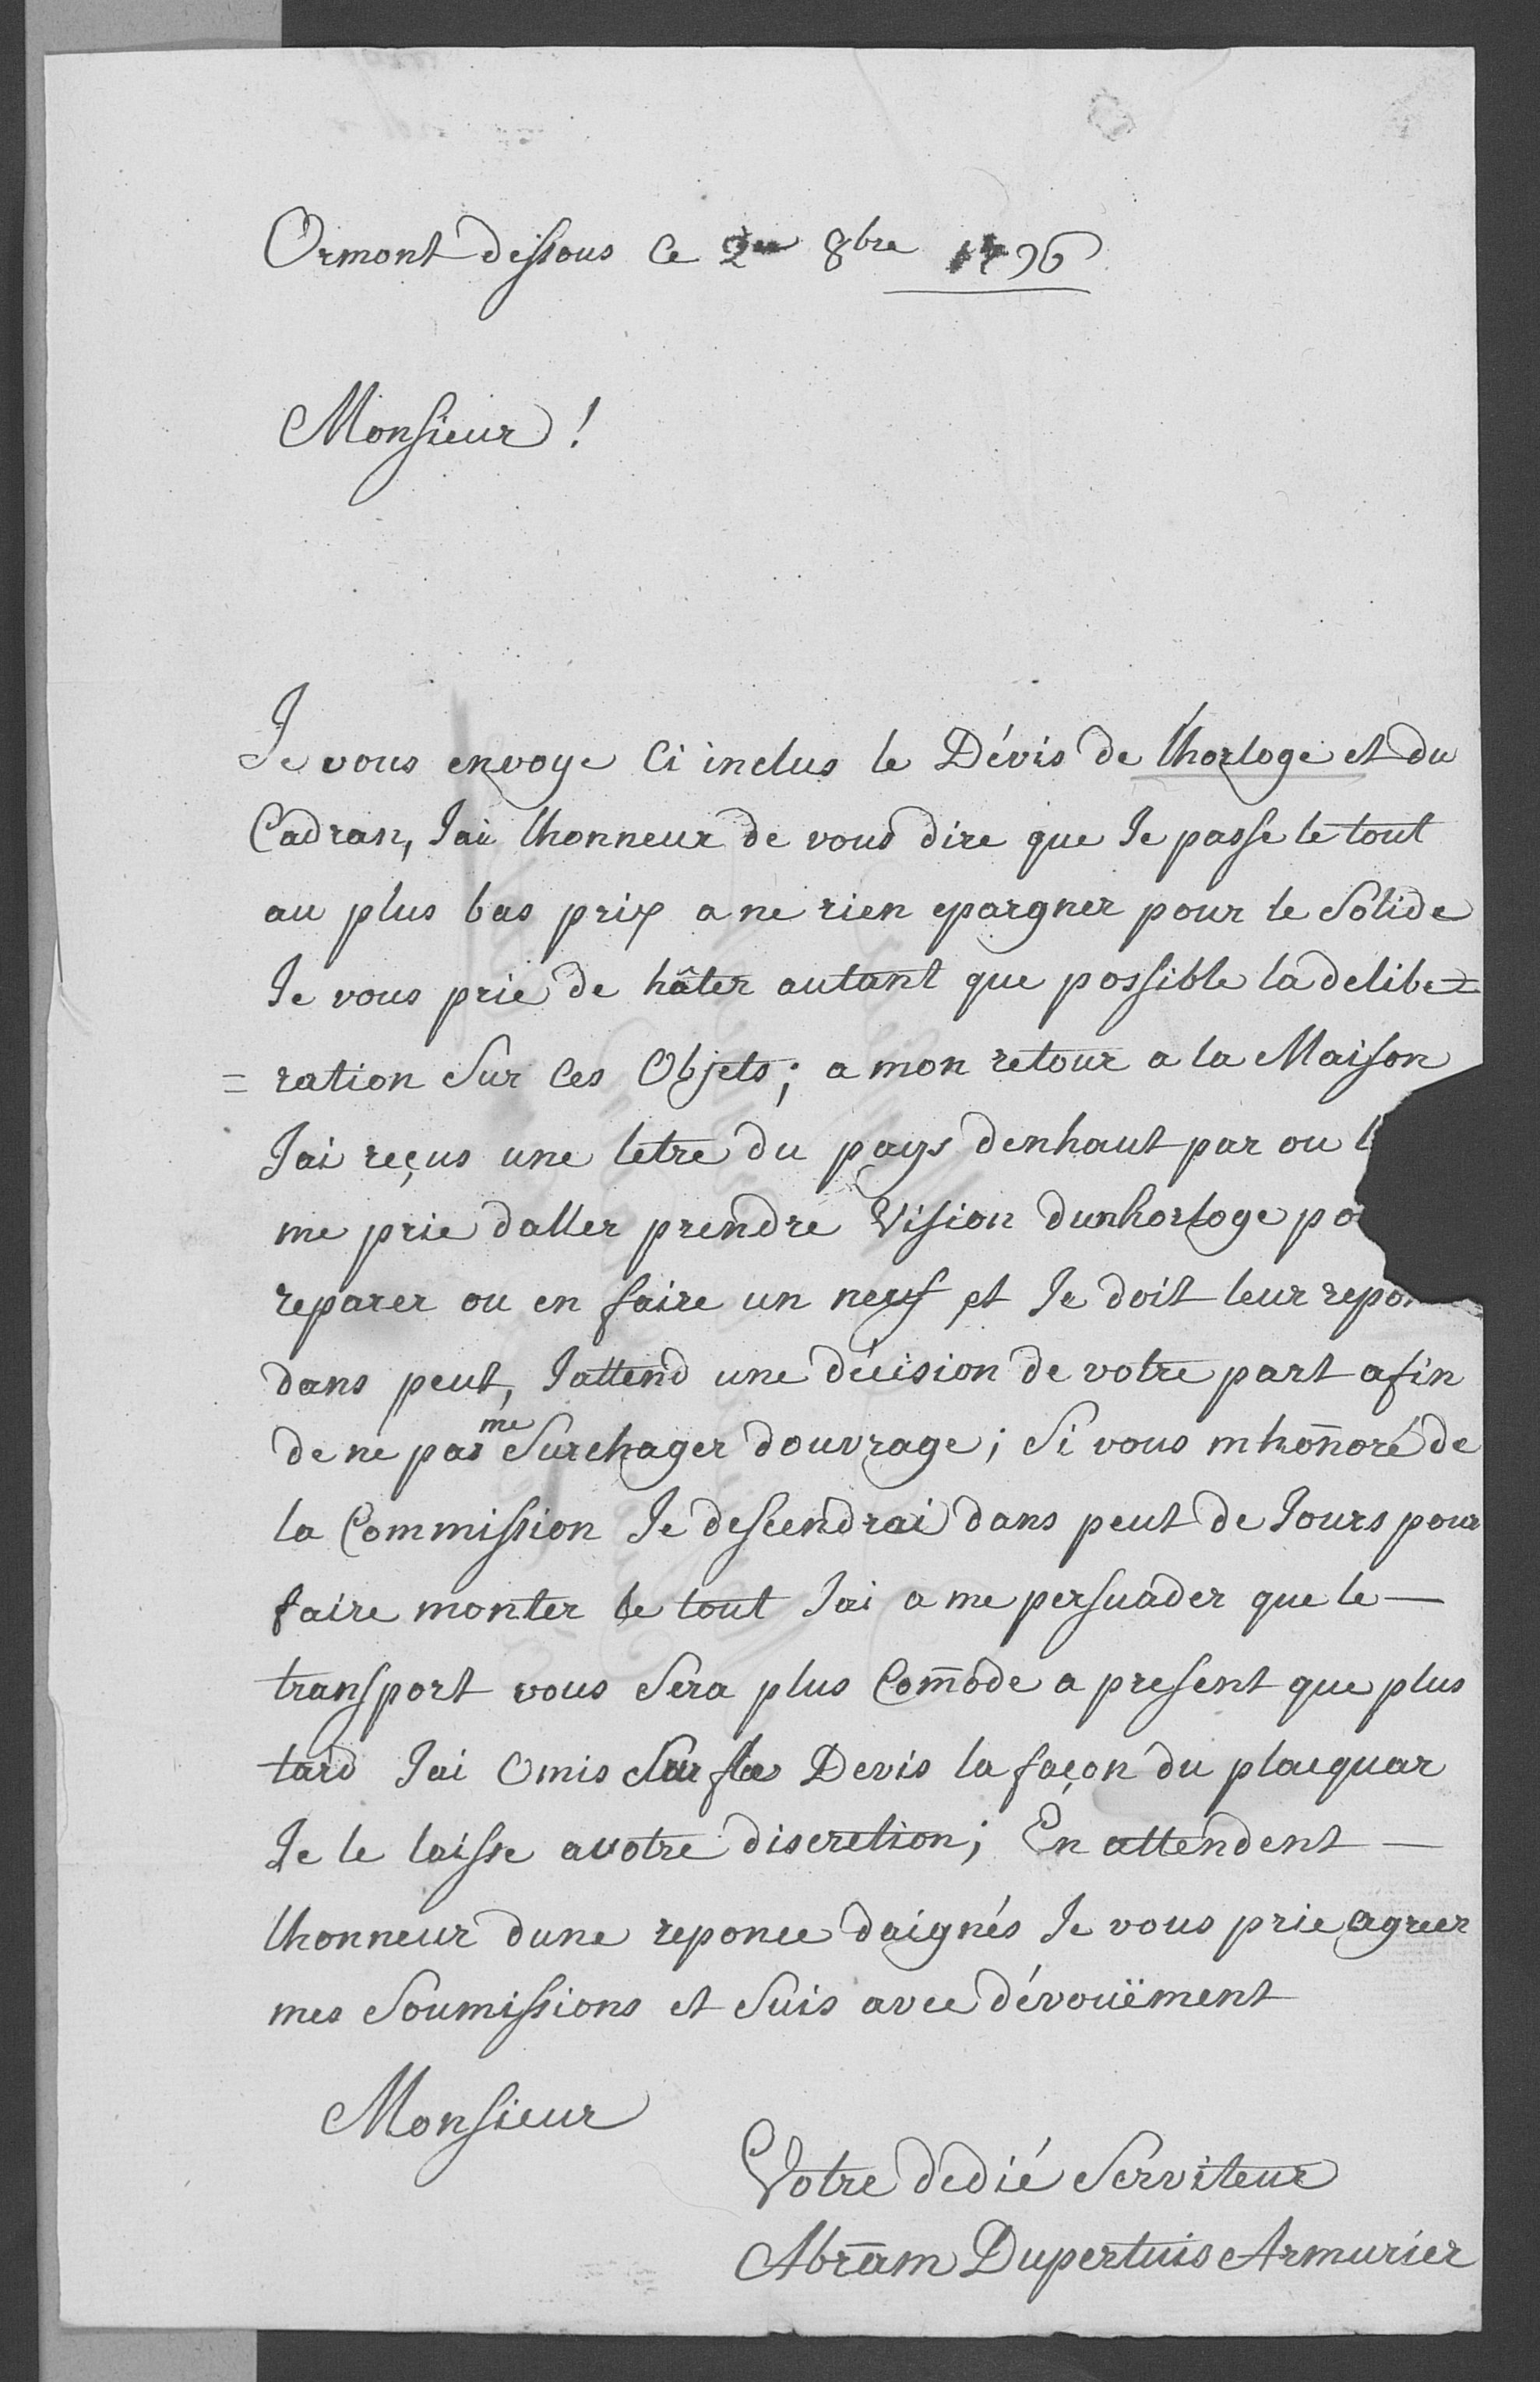 Ormont dessous ce 2e 8bre 1796
Monsieur !
Je vous envoye Ci inclus le Dévis de lhorloge et du
Cadran, Jai lhonneur de vous dire que Je passe le tout
au plus bas prix a ne rien epargner pour le Solide
Je vous prie de hâter autant que possible la delibe=
=ration Sur Ces Objets ; a mon retour a la Maison
Jai reçus une letre du pays denhaut par ou
me prie daller prendre Vision dunhorloge po
reparer ou en faire un neuf et Je doit leur repon
dans peut, Jattend une décision de votre part afin
de ne pas me Surchager douvrage ; Si vous mhon̄oré de
la Commission Je descendrai dans peut de Jours pour
faire monter le tout Jai a me persuader que le —
transport vous Sera plus Com̄ode a present que plus
tard Jai Omis Sur le Devis la façon du placquar
Je le laisse avotre discretion ; En attendent —
lhonneur dune reponce daignés Je vous prie agreer
mes Soumissions et Suis avec dévouëment
Monsieur
Votre dedié Serviteur
Abram Dupertuis Armurier